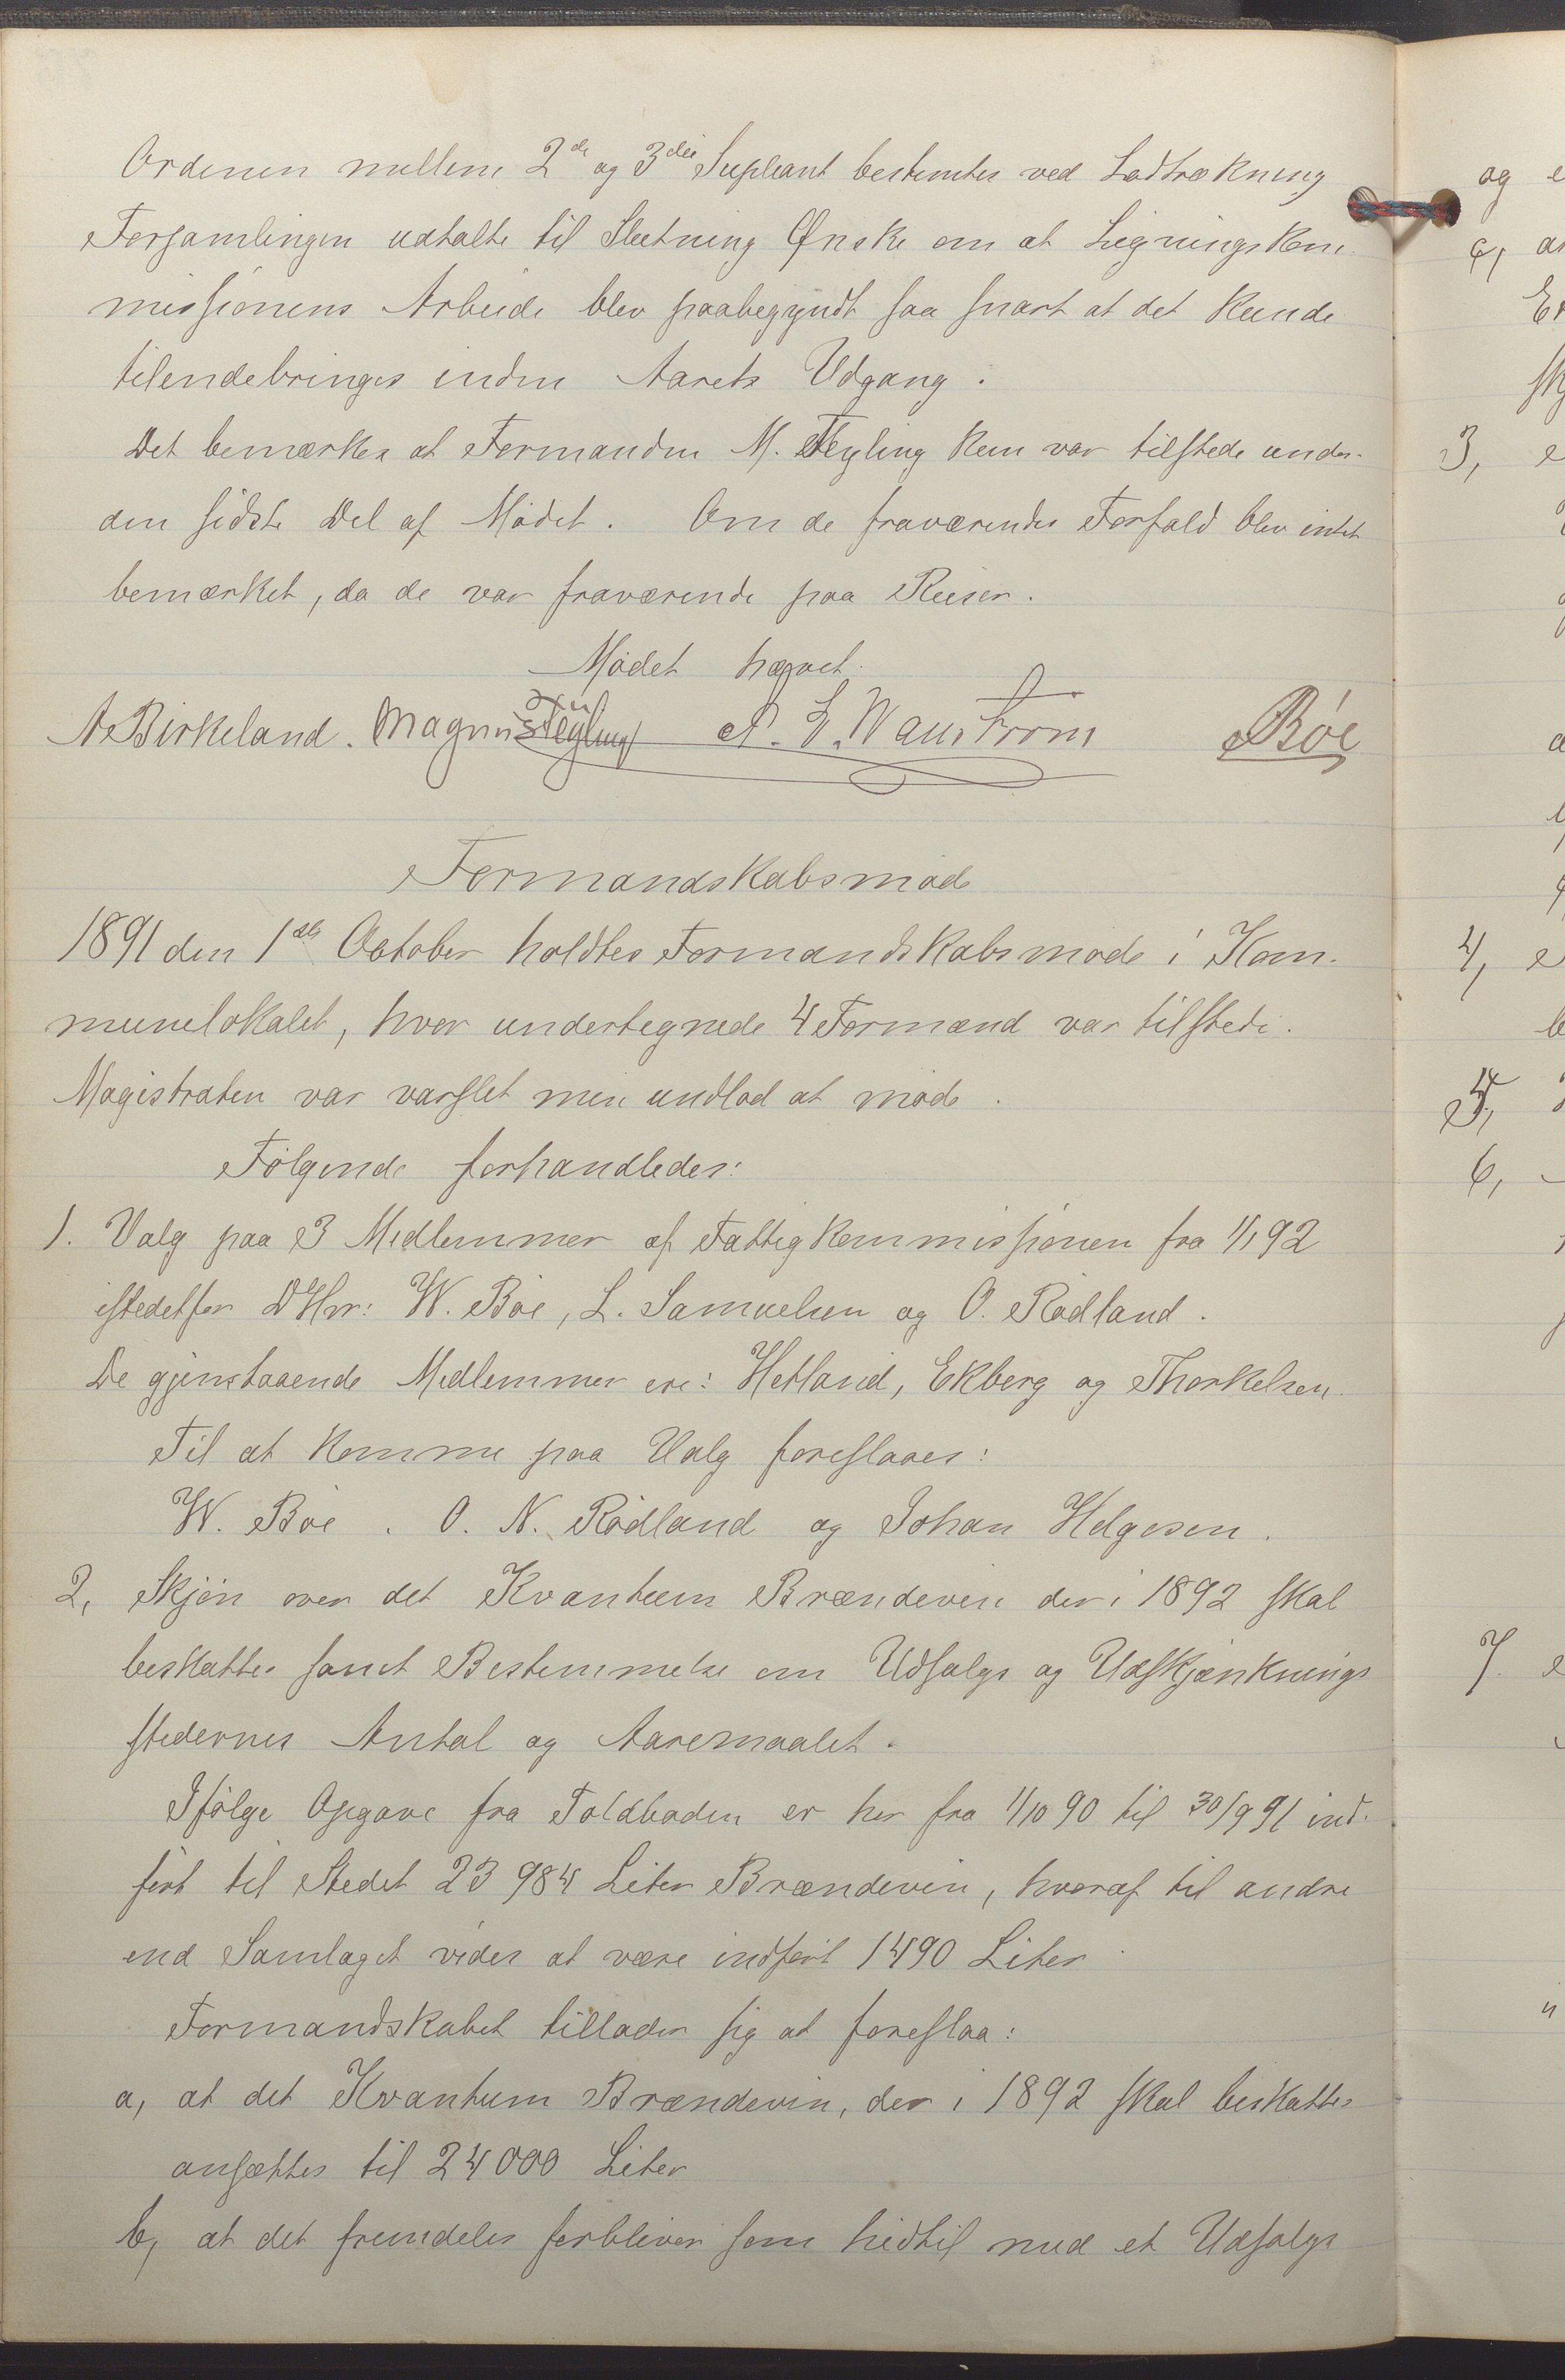 Ordenen mellem 2de og 3die Supleant bestemtes ved Lodtrækning
Forsamlingen udtalte til Slutning Ønske om at Ligningskom-
missionens Arbeide blev paabegyndt saa snart at det kunde
tilendebringes inden Aarets Udgang.
Det bemærkes at Formanden M. Feyling kun var tilstede under
den sidste Del af Mødet. Om de fraværendes Forfald blev intet
bemærket, da de var fraværende paa Reiser.
Mødet hævet.
A Birkeland. Magnus Feyling P. E. Wanstrøm Bøe
Formandskabsmøde
1891 den 1ste October holdtes Formandskabsmøde i Kom-
munelokalet, hvor undertegnede 4 Formænd var tilstede.
Magistraten var varslet men undlod at møde.
Følgende forhandledes:
1. Valg paa 3 Medlemmer af Fattigkommissionen fra 1/1 92
istedetfor DHrr: W. Bøe, L. Samuelsen og O. Rødland.
De gjenstaaende Medlemmer ere: Hetland, Ekberg og Thorkelsen.
Til at komme paa Valg foreslaaes:
W. Bøe. O. N. Rødland og Johan Helgesen.
2, Skjøn over det Kvantum Brændevin der i 1892 skal
beskattes samt Bestemmelse om Udsalgs og Udskjænknings
stedernes Antal og Aaremaalet.
Ifølge Opgave fra Toldboden er her fra 1/10 90 til 30/9 91 ind-
ført til Stedet 23 984 Liter Brændevin, hvoraf til andre
end Samlaget vides at være indført 1490 Liter
Formandskabet tillader sig at foreslaa:
a, at det Kvantum Brændevin, der i 1892 skal beskattes
ansættes til 24000 Liter
b, at det fremdeles forbliver som hidtil med et Udsalgs
og
c,
3,
4,
5,
6,
7.